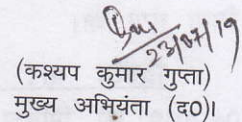 23/07/19
(कश्यप कुमार गुप्ता)
मुख्य अभियंता (द०)।